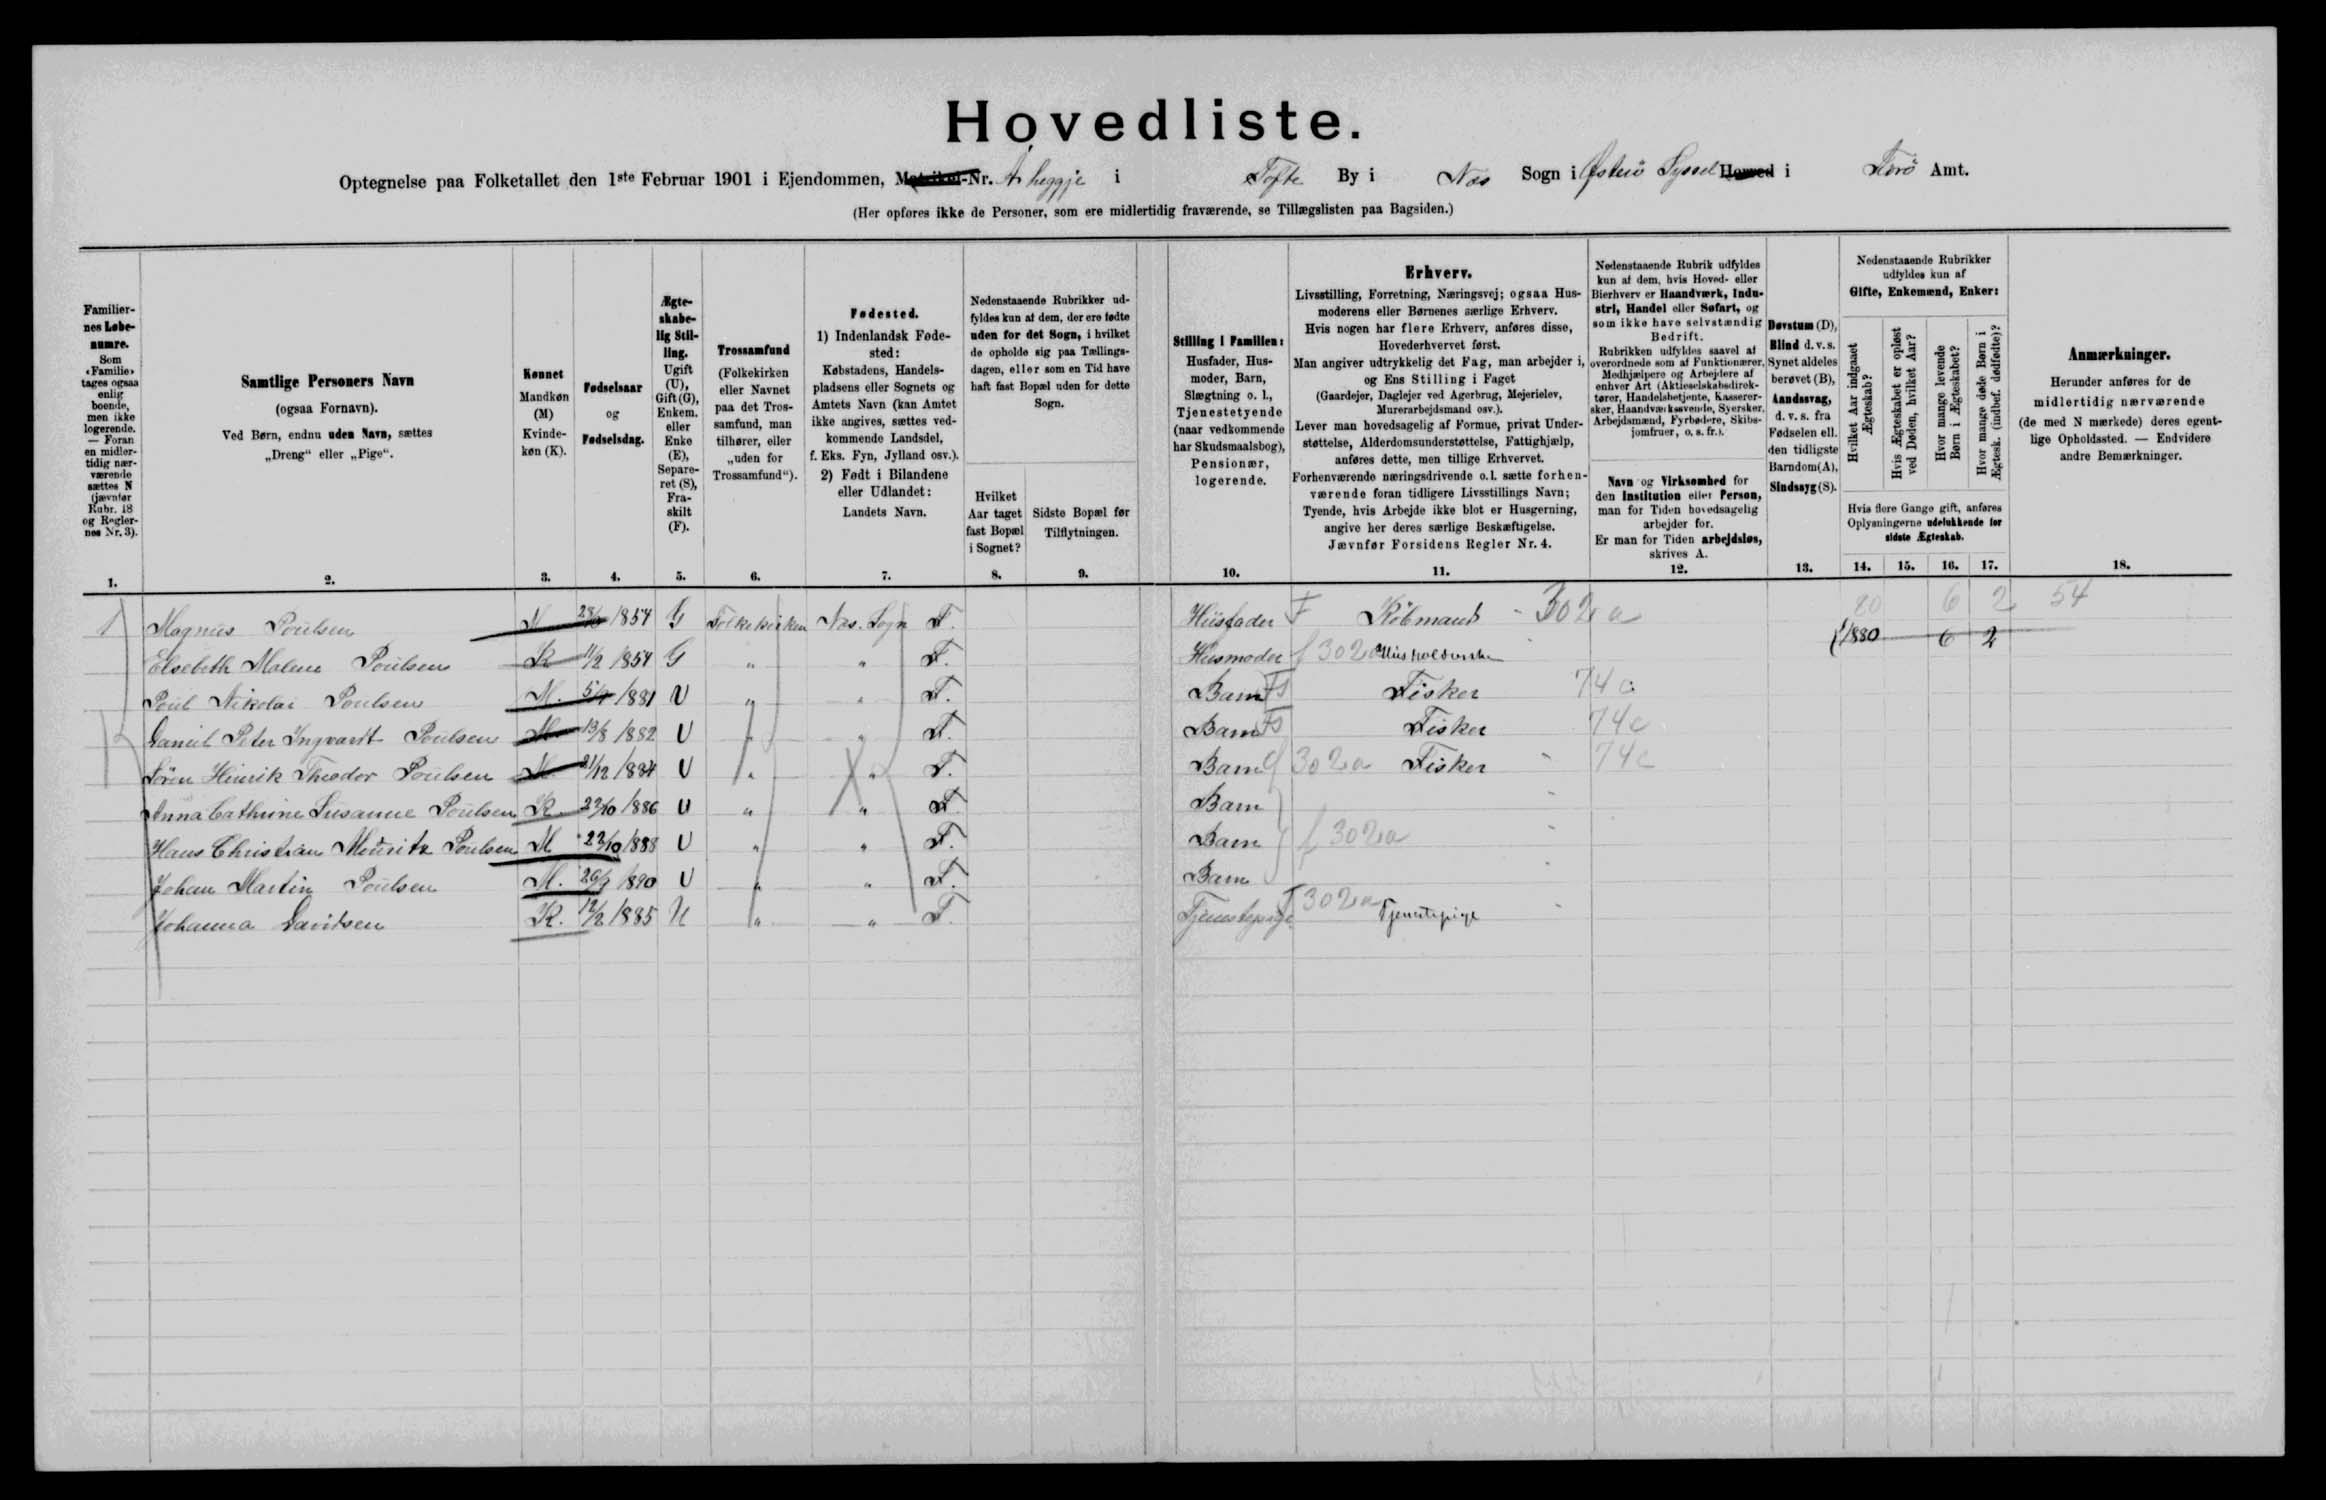 Hovedliste.
Optegnelse paa Folketallet den 1ste Februar 1901 i Ejendommen, Matrikel-Nr. Á heggje i Tofte By i Næs Sogn i Østerö Syssel Herred i Færö Amt.
(Her opføres ikke de Personer, som ere midlertidig fraværende, se Tillægslisten paa Bagsiden.)
Familiernes Løbenumre.
Som «Familie» tages ogsaa enlig boende, men ikke logerende. — Foran en midlertidig nærværende sættes N (jævnfør Rubr. 18 og Reglernes Nr. 3).
1.
Samtlige Personers Navn
(ogsaa Fornavn).
Ved Børn, endnu uden Navn, sættes
„Dreng“ eller „Pige“.
2.
Kønnet
Mandkøn (M)
Kvindekøn (K).
3.
Fødselsaar
og
Fødselsdag.
4.
Ægteskabelig Stilling.
Ugift (U), Gift (G), Enkem. eller Enke (E), Separeret (S), Fraskilt (F).
5.
Trossamfund
(Folkekirken eller Navnet paa det Trossamfund, man tilhører, eller „uden for Trossamfund“).
6.
Fødested.
1) Indenlandsk Fødested:
Købstadens, Handelspladsens eller Sognets og Amtets Navn (kan Amtet ikke angives, sættes vedkommende Landsdel, f. Eks. Fyn, Jylland osv.).
2) Født i Bilandene eller Udlandet:
Landets Navn.
7.
Nedenstaaende Rubrikker udfyldes kun af dem, der ere fødte uden for det Sogn, i hvilket de opholde sig paa Tællingsdagen, eller som en Tid have haft fast Bopæl uden for dette Sogn.
Hvilket Aar taget fast Bopæl i Sognet?
8.
Sidste Bopæl før Tilflytningen.
9.
Stilling i Familien:
Husfader, Husmoder, Barn, Slægtning o. l., Tjenestetyende (naar vedkommende har Skudsmaalsbog), Pensionær, logerende.
10.
Erhverv.
Livsstilling, Forretning, Næringsvej; ogsaa Husmoderens eller Børnenes særlige Erhverv.
Hvis nogen har flere Erhverv, anføres disse, Hovederhvervet først.
Man angiver udtrykkelig det Fag, man arbejder i, og Ens Stilling i Faget
(Gaardejer, Daglejer ved Agerbrug, Mejerielev, Murerarbejdsmand osv.).
Lever man hovedsagelig af Formue, privat Understøttelse, Alderdomsunderstøttelse, Fattighjælp, anføres dette, men tillige Erhvervet.
Forhenværende næringsdrivende o. l. sætte forhenværende foran tidligere Livsstillings Navn;
Tyende, hvis Arbejde ikke blot er Husgerning, angive her deres særlige Beskæftigelse.
Jævnfør Forsidens Regler Nr. 4.
11.
Nedenstaaende Rubrik udfyldes kun af dem, hvis Hoved- eller Bierhverv er Haandværk, Industri, Handel eller Søfart, og som ikke have selvstændig Bedrift.
Rubrikken udfyldes saavel af overordnede som af Funktionærer, Medhjælpere og Arbejdere af enhver Art (Aktieselskabsdirektører, Handelsbetjente, Kasserersker, Haandværkssvende, Syersker, Arbejdsmænd, Fyrbødere, Skibsjomfruer, o. s. fr.).
Navn og Virksomhed for den Institution eller Person, man for Tiden hovedsagelig arbejder for.
Er man for Tiden arbejdsløs, skrives A.
12.
Døvstum (D), Blind d. v. s. Synet aldeles berøvet (B), Aandssvag, d. v. s. fra Fødselen ell. den tidligste Barndom (A), Sindssyg (S).
13.
Nedenstaaende Rubrikker udfyldes kun af
Gifte, Enkemænd, Enker:
Hvilket Aar indgaaet Ægteskab?
Hvis Ægteskabet er opløst ved Døden, hvilket Aar?
Hvor mange levende Børn i Ægteskabet?
Hvor mange døde Børn i Ægtesk. (indbef. dødfødte)?
Hvis flere Gange gift, anføres Oplysningerne udelukkende for sidste Ægteskab.
14. 15. 16. 17.
Anmærkninger.
Herunder anføres for de midlertidig nærværende (de med N mærkede) deres egentlige Opholdssted. — Endvidere andre Bemærkninger.
18.
1 Magnus Poulsen M 1854 G Folkekirken Næs. Sogn F. Husfader F Købmand 302a 80 6 2 54
Elsebeth Malene Poulsen K 11/2 1854 G „ „ F. Husmoder f 302a 1880 6 2
Poul Nikolai Poulsen M. 1881 U „ „ F. Barn Fs Fisker 74c
Daniel Peter Ingvardt Poulsen M 13/8 1882 U „ „ F. Barn Fs Fisker 74c
Sören Hinrik Theodor Poulsen M. 21/12 1884 U „ „ F. Barn 302a Fisker 74c
Anna Cathrine Susanne Poulsen K. 1886 U „ „ F. Barn
Hans Christian Mouritz Poulsen M 1888 U „ „ F. Barn f 302a
Johan Martin Poulsen M. 1890 U „ „ F. Barn
Johanna Davidsen K. 12/2 1885 U „ „ F. Tjenestepige T 302a Tjenestepige